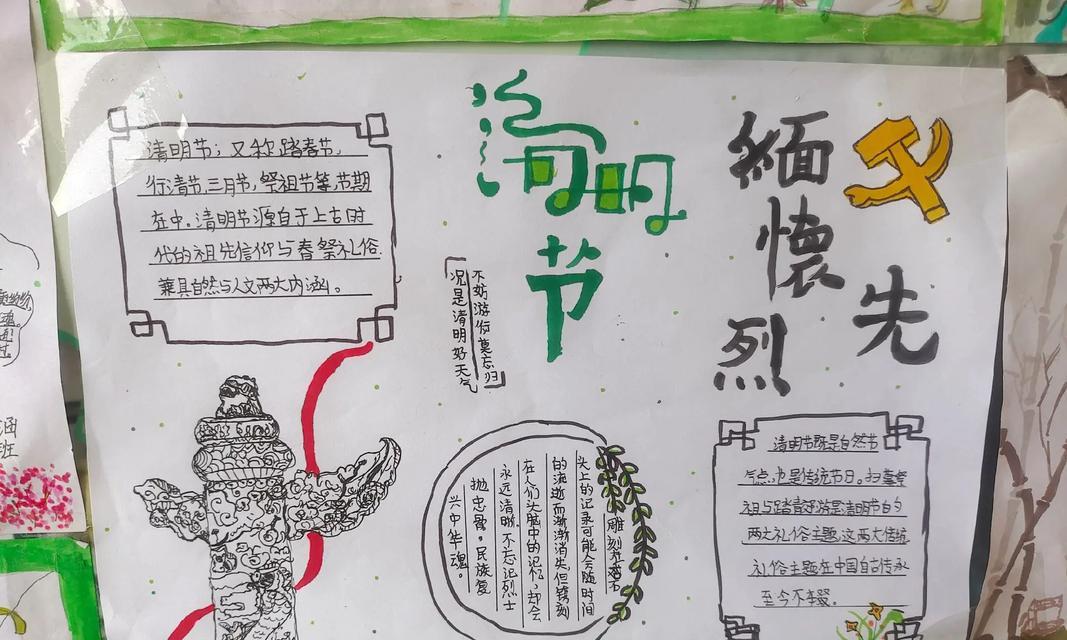 清明节；又称踏春节，
行清节,三月节,祭祖节等,节期
在中。清明节源自于上古时
代的祖先信仰与春祭礼俗.
兼具自然与人文两大内涵。
清明
节
况是清明好天气
不妨游衍莫忘归
緬懷
先烈
雕刻在石
头上的记录可能会随时间
的流逝而渐渐消失,但镌刻
在人们头脑中的记忆,却会
永远清晰.不忘记烈士
抛忠骨,民族复
兴中华魂。
清明节既是自然节
气点,也是传统节日。扫墓祭
祖与踏青郊游是清明节的
两大礼俗主题,这两大传统
礼俗主题在中国自古传承
至今不辍。
涵
班